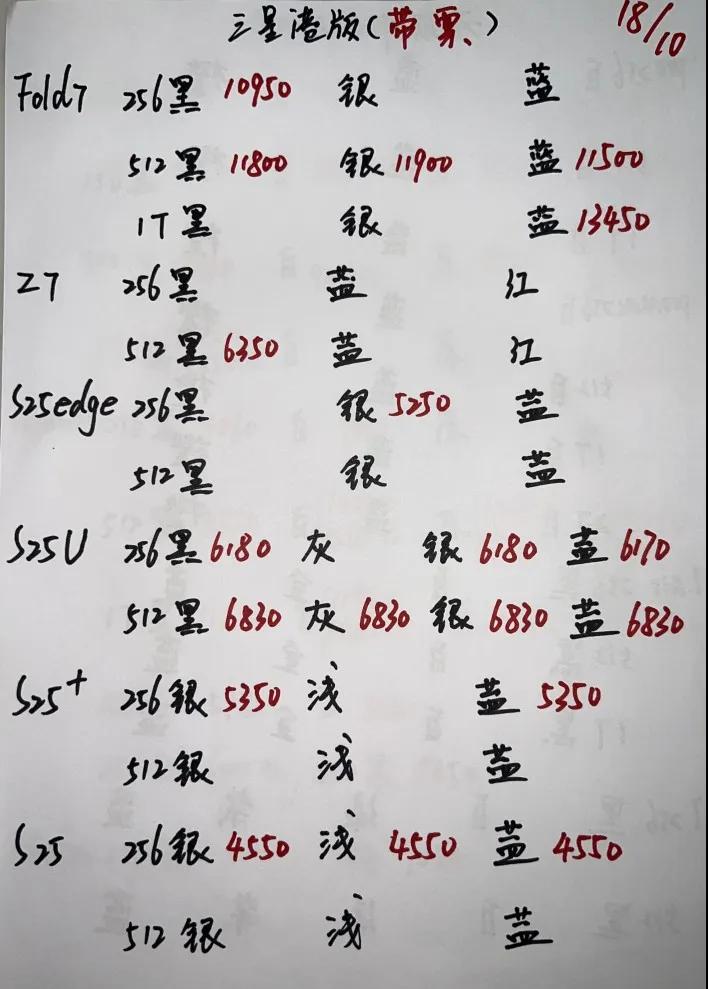 三星港版(带票) 18/10
Fold7 256黑 10950 银 蓝
512黑 11800 银 11900 蓝 11500
1T黑 银 蓝 13450
Z7 256黑 蓝 红
512黑 6350 蓝 红
S25edge 256黑 银 5250 蓝
512黑 银 蓝
S25U 256黑 6180 灰 银 6180 蓝 6170
512黑 6830 灰 6830 银 6830 蓝 6830
S25+ 256银 5350 浅 蓝 5350
512银 浅 蓝
S25 256银 4550 浅 4550 蓝 4550
512银 浅 蓝